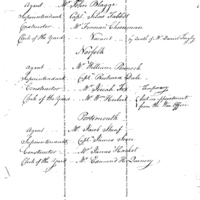 Agent Mr. John Blagge
Superintendant Capt. Silas Talbot
Constructor Mr. Forman Cheesman
Clerk of the Yard Vacant by death of Mr. Daniel
Norfolk
Agent Mr. William Pennock
Superintendant Capt. Richard Dale
Constructor Mr. Josiah Fox Temporary
Clerk of the Yard Mr. Wm. Herbert last an appointment
from the War Office
Portsmouth
Agent Mr. Jacob Sheaf
Superintendant Capt. James
Constructor Mr. James Hackett
Clerk of the Yard Mr. Edmund H. Quincy